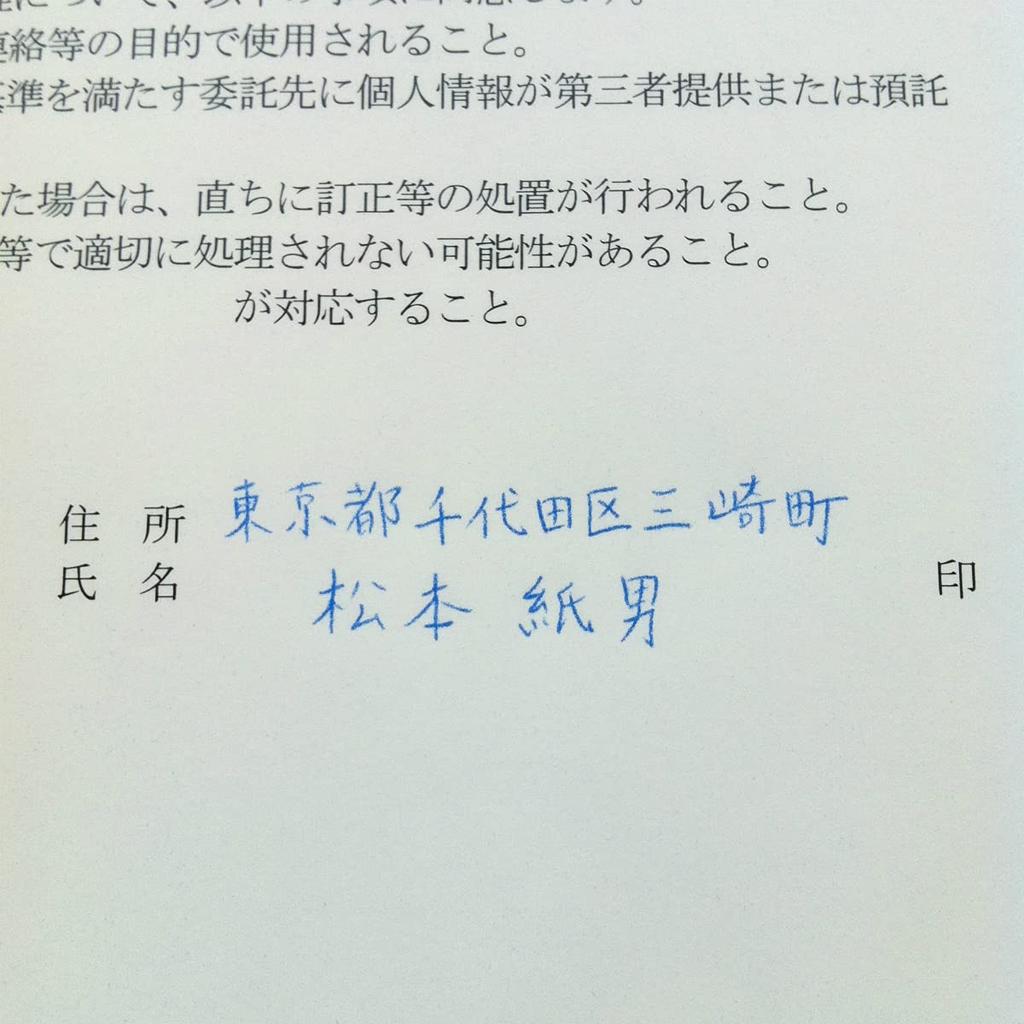 連絡等の目的で使用されること。
準を満たす委託先に個人情報が第三者提供または預託
た場合は、直ちに訂正等の処置が行われること。
等で適切に処理されない可能性があること。
が対応すること。
住 所 東京都千代田区三崎町
氏 名 松本 紙男 印